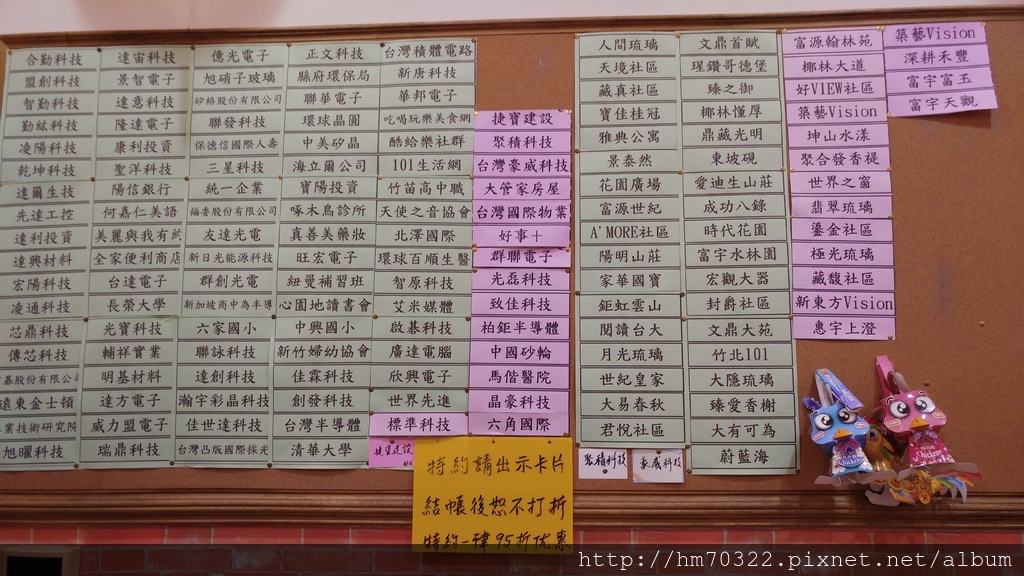 合勤科技
盟創科技
智勤科技
勤紘科技
凌陽科技
乾坤科技
達爾生技
先達工控
達利投資
達興材料
宏陽科技
凌通科技
芯鼎科技
傳芯科技
股份有限公司
遠東金士頓
業技術研究院
旭曜科技
達宙科技
景智電子
達意科技
隆達電子
康利投資
聖洋科技
陽信銀行
何嘉仁美語
美麗與我有約
全家便利商店
台達電子
長榮大學
光寶科技
輔祥實業
明基材料
達方電子
威力盟電子
瑞鼎科技
億光電子
旭硝子玻璃
矽格股份有限公司
聯發科技
保德信國際人壽
三星科技
統一企業
福委股份有限公司
友達光電
新日光能源科技
群創光電
新加坡商中為半導
六家國小
聯詠科技
達創科技
瀚宇彩晶科技
佳世達科技
台灣凸版國際採光
正文科技
縣府環保局
聯華電子
環球晶圓
中美矽晶
海立爾公司
寶陽投資
啄木鳥診所
真善美藥妝
旺宏電子
紐曼補習班
心園地讀書會
中興國小
新竹婦幼協會
佳霖科技
創發科技
台灣半導體
清華大學
台灣積體電路
新唐科技
華邦電子
吃喝玩樂美食網
酷給樂社群
101生活網
竹苗高中職
天使之音協會
北澤國際
環球百順生醫
智原科技
艾米媒體
啟碁科技
廣達電腦
欣興電子
世界先進
標準科技
捷寶建設
捷寶建設
聚積科技
台灣豪威科技
大管家房屋
台灣國際物業
好事+
群聯電子
光磊科技
致佳科技
柏鉅半導體
中國砂輪
馬偕醫院
晶豪科技
六角國際
特約請出示卡片
結帳後恕不打折
特約一律95折优惠
人間琉璃
天境社區
藏真社區
寶佳桂冠
雅典公寓
景泰然
花園廣場
富源世紀
A'MORE社區
陽明山莊
家華國寶
鉅虹雲山
閱讀台大
月光琉璃
世紀皇家
大易春秋
君悅社區
聚積科技
豪威科技
文鼎首賦
瑆鑽哥德堡
臻之御
椰林懂厚
鼎藏光明
東坡硯
愛迪生山莊
成功八錦
時代花園
富宇水林園
宏觀大器
封爵社區
文鼎大苑
竹北101
大隱琉璃
臻愛香榭
大有可為
蔚藍海
富源翰林苑
椰林大道
好VIEW社區
築藝Vision
坤山水漾
聚合發香禔
世界之窗
翡翠琉璃
鎏金社區
極光琉璃
藏馥社區
新東方Vision
惠宇上澄
築藝Vision
深耕禾豐
富宇富玉
富宇天觀
http://hm70322.pixnet.net/album